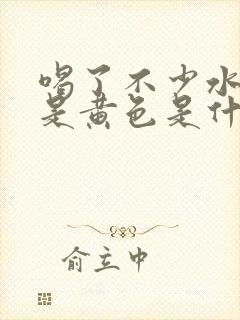 喝了不少水
是黄色是什
俞立中